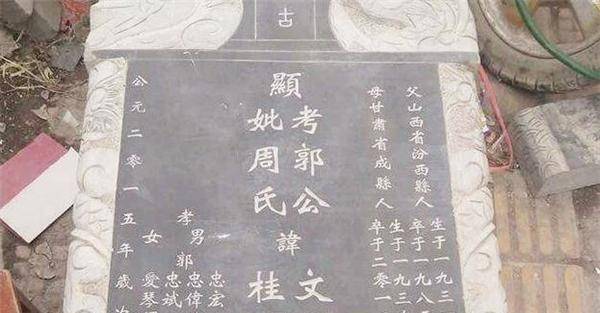 古
父山西省汾西縣人
生于一九三
卒于一九八
母甘肅省成縣人
生于一九三
卒于二零一
顯
考郭公
妣周氏
諱
文
桂
孝
男
女
郭
忠宏
忠偉
忠斌
愛琴
公元二零一五年歲次